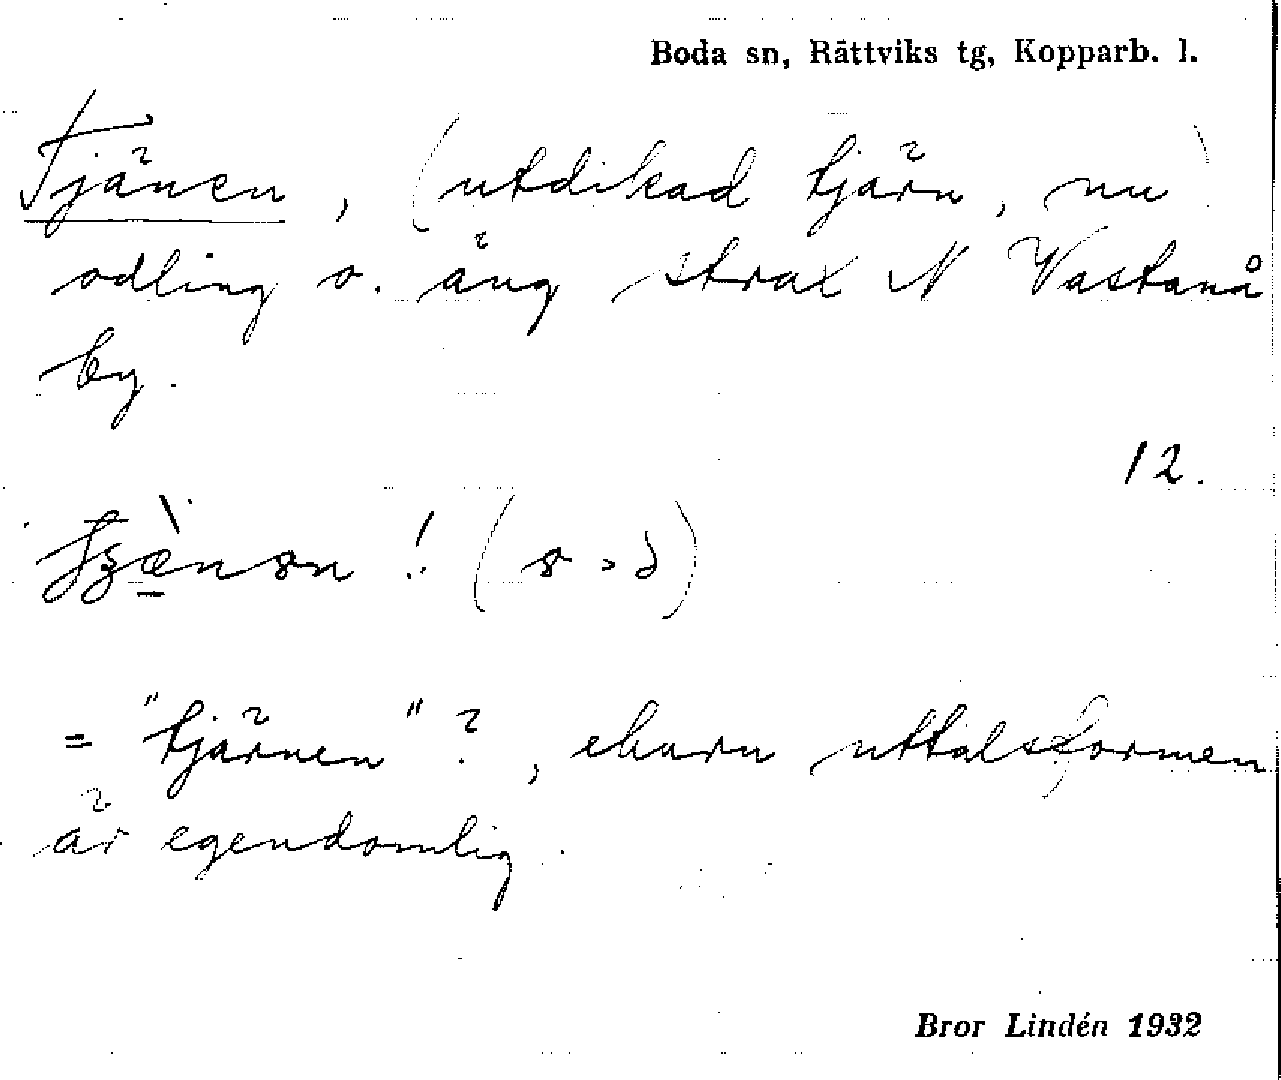 Boda sn, Rättviks tg, Kopparb. l.
Tjänen, (utdikad tjärn, nu)
odling o. äng strax N Västanå
by.
12.
! (s. d)
= "tjärnen"?, ehuru uttalsformen
är egendomlig.
Bror Lindén 1932